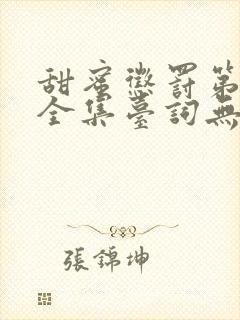 甜蜜懲罰第
全集臺詞無
張錦坤